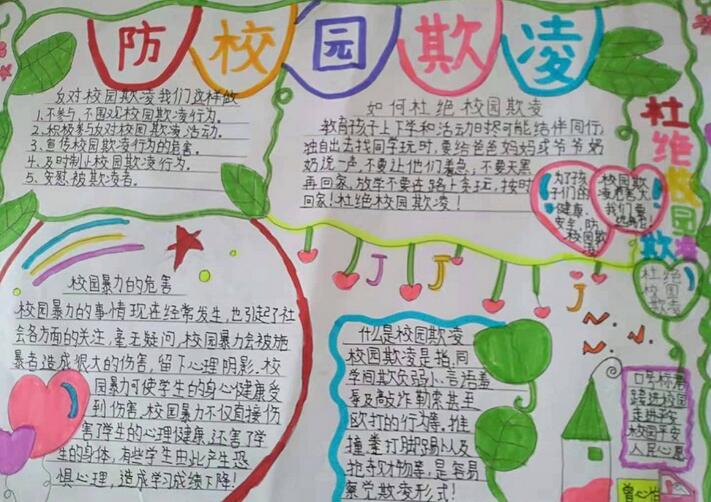 防校园欺凌
反对校园欺凌我们这样做
1.不参与,不围观校园欺凌行为。
2.积极参与反对校园欺凌活动。
3.宣传校园欺凌行为的危害。
4.及时制止校园欺凌行为。
5.安慰被欺凌者。
如何杜绝校园欺凌
教育孩子上下学和活动时尽可能结伴同行,
独自出去找同学玩时,要给爸爸妈妈或爷爷奶
奶说一声,不要让他们着急,不要天黑
再回家,放学不要在路上贪玩,按时
回家!杜绝校园欺凌!
为了孩
子们的
健康、
安全,防
校园欺
校园欺
凌危害大
我们要
杜绝校园欺凌
杜绝
校园
欺凌
校园暴力的危害
校园暴力的事情现在经常发生,也引起了社
会各方面的关注,毫无疑问,校园暴力会被施
暴者造成很大的伤害,留下心理阴影。校
园暴力可使学生的身心健康受
到伤害。校园暴力不仅直接伤
害了学生的心理健康,还害了学
生的身体,有些学生由此产生恐
惧心理,造成学习成绩下降!
什么是校园欺凌
校园欺凌是指同
学间欺负弱小、言语羞
辱及敲诈勒索甚至
殴打的行为等。推
撞、拳打脚踢以及
抢夺财物等,是容易
察觉欺凌形式!
J
J
J
口号标准
踏进校园
走进平安
校园平安
人民心愿
曾心